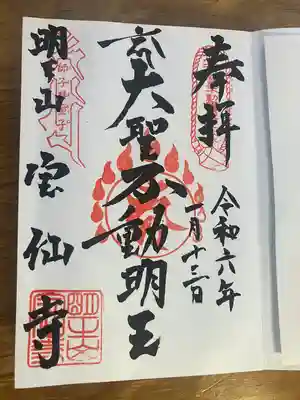 奉拝
令和六年
一月十三日
大聖不動明王
明王山
宝仙寺